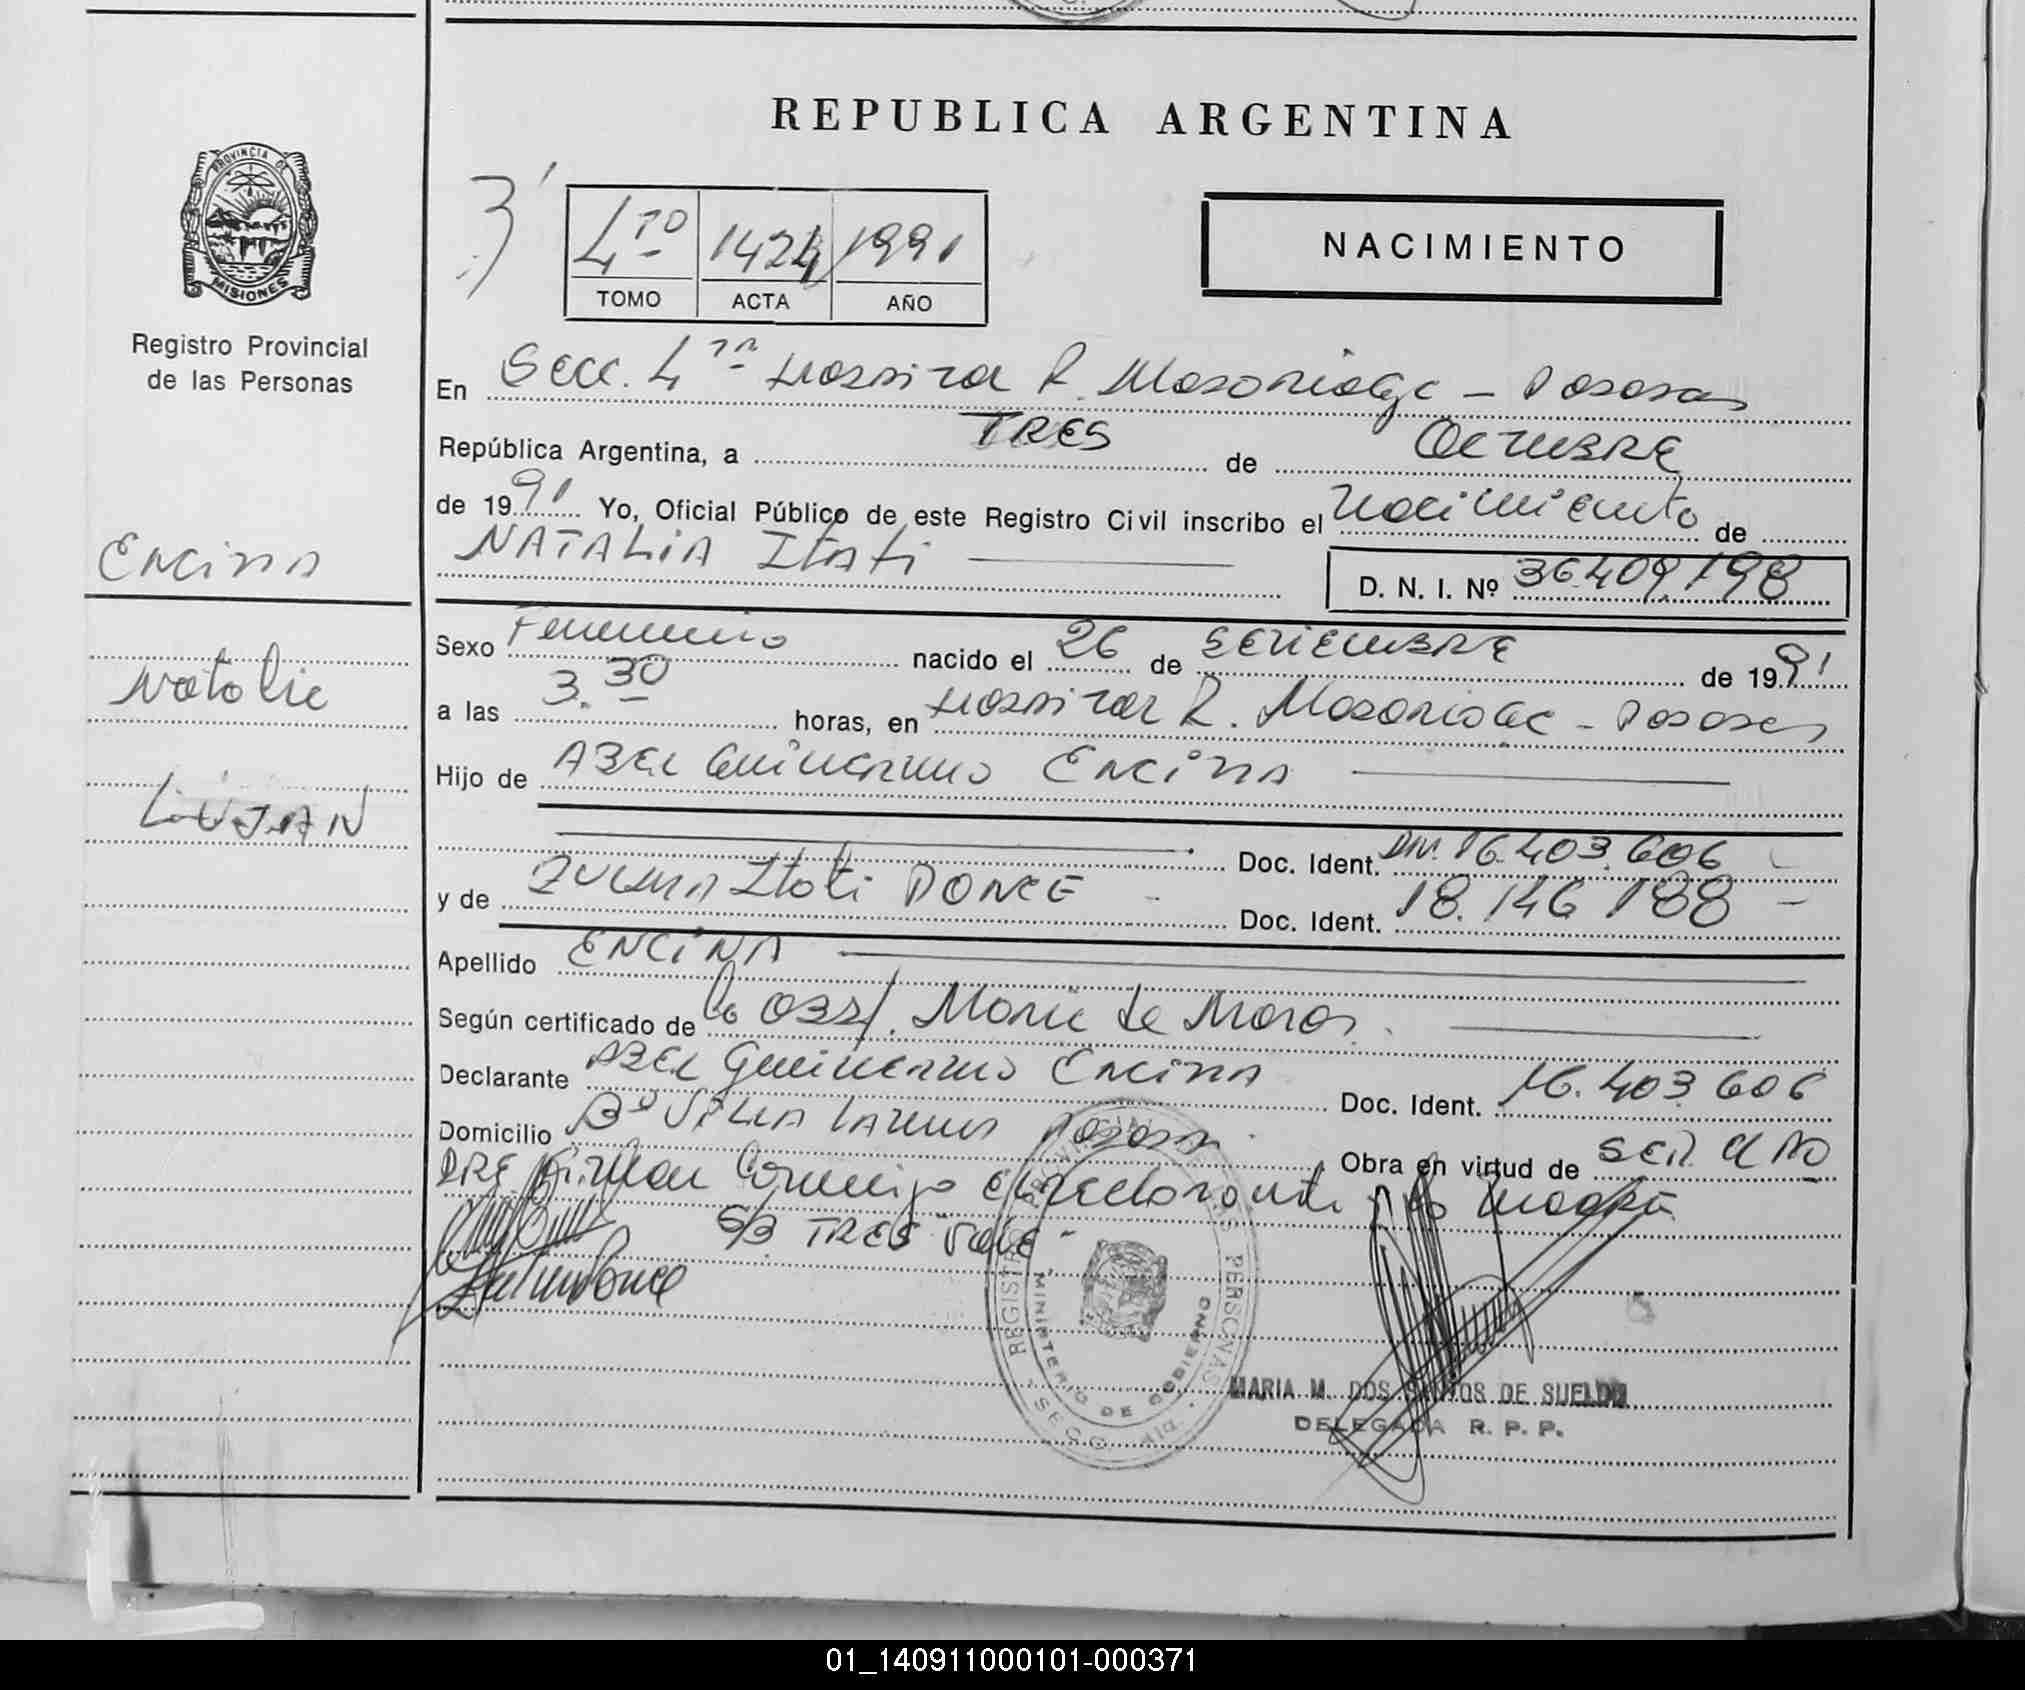 REPUBLICA ARGENTINA
PROVINCIA DE
MISIONES
Registro Provincial
de las Personas
4 TO 1424 1991
TOMO ACTA AÑO
NACIMIENTO
En Secc. 4 Hospital R. Madariaga - Posadas
República Argentina, a TRES de Octubre
de 1991 Yo, Oficial Público de este Registro Civil inscribo el nacimiento de
NATALIA Itati
D. N. I. Nº 36.409.198
Encina
Natalia
LUJAN
Sexo Femenino nacido el 26 de Setiembre de 1991
a las 3.30 horas, en Hospital R. Madariaga - Posadas
Hijo de Abel Guillermo Encina
Doc. Ident. DNI. 16.403.606
y de Zulma Itati PONCE Doc. Ident. 18.146.188
Apellido ENCINA
Según certificado de la Obst. Maria de
Declarante Abel Guillermo Encina Doc. Ident. 16.403.606
Domicilio Bº Posadas Obra en virtud de ser el PADRE
Firman el declarante y la madre
S/B TRES Vale
REGISTRO PROVINCIAL DE LAS PERSONAS
MINISTERIO DE GOBIERNO
MARIA M. DOS SANTOS DE SUELDO
DELEGADA R. P. P.
01_140911000101-000371